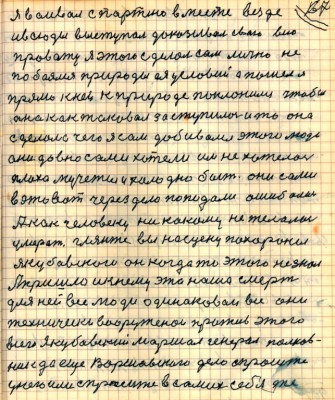 137
я воевал с партию вместе везде
и всюды выступал доказывал свою
провату я этого сделал сам лично не
побоялся природы а я условий а пошел
прямо к ней к природе поклонился чтобы
она как таковая заступилась и что она
сделала с чего я сам добивался этого люди
они давно сами хотели им не хотелось
плохо мучется и холодно быть они сами
в это через дело попадали ошибались
А как человеку никакому не желалось
умирать гляньте вы на сцену похоронил
якубавского он когда то этого не знал
Пришло и к нему это наша смерть
для ней все люди одинаковые все они
технически вооруженой против этого
всего Якубавский маршал генерал полков-
ник да еще Варшавского дело спросите
у него или спросите в самих себя уже